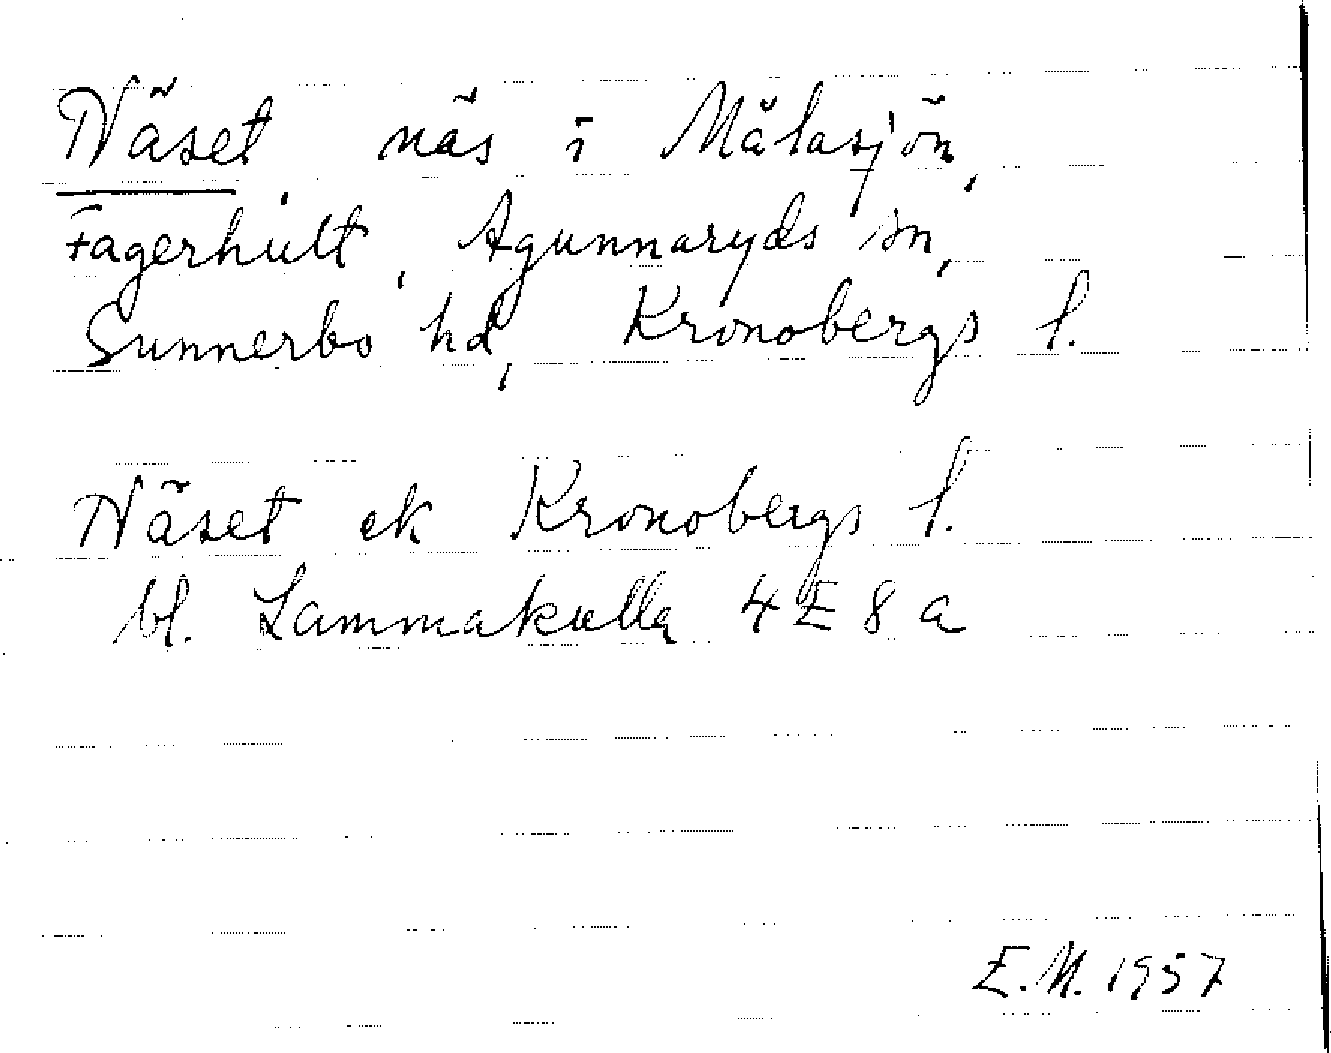 Näset, näs i Målasjön,
Fagerhult, Agunnaryds sn,
Sunnerbo hd, Kronobergs l.
Näset ek Kronobergs l.
bl. Lammakulla 4 E 8 a
E.M. 1957